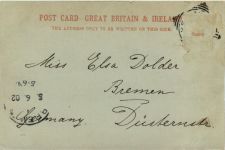 POST CARD-GREAT BRITAIN & IRELAND
THE ADDRESS ONLY TO BE WRITTEN ON THIS SIDE.
Miss Elsa Dolder
Bremen
Germany Düsternstr.
5 6 02